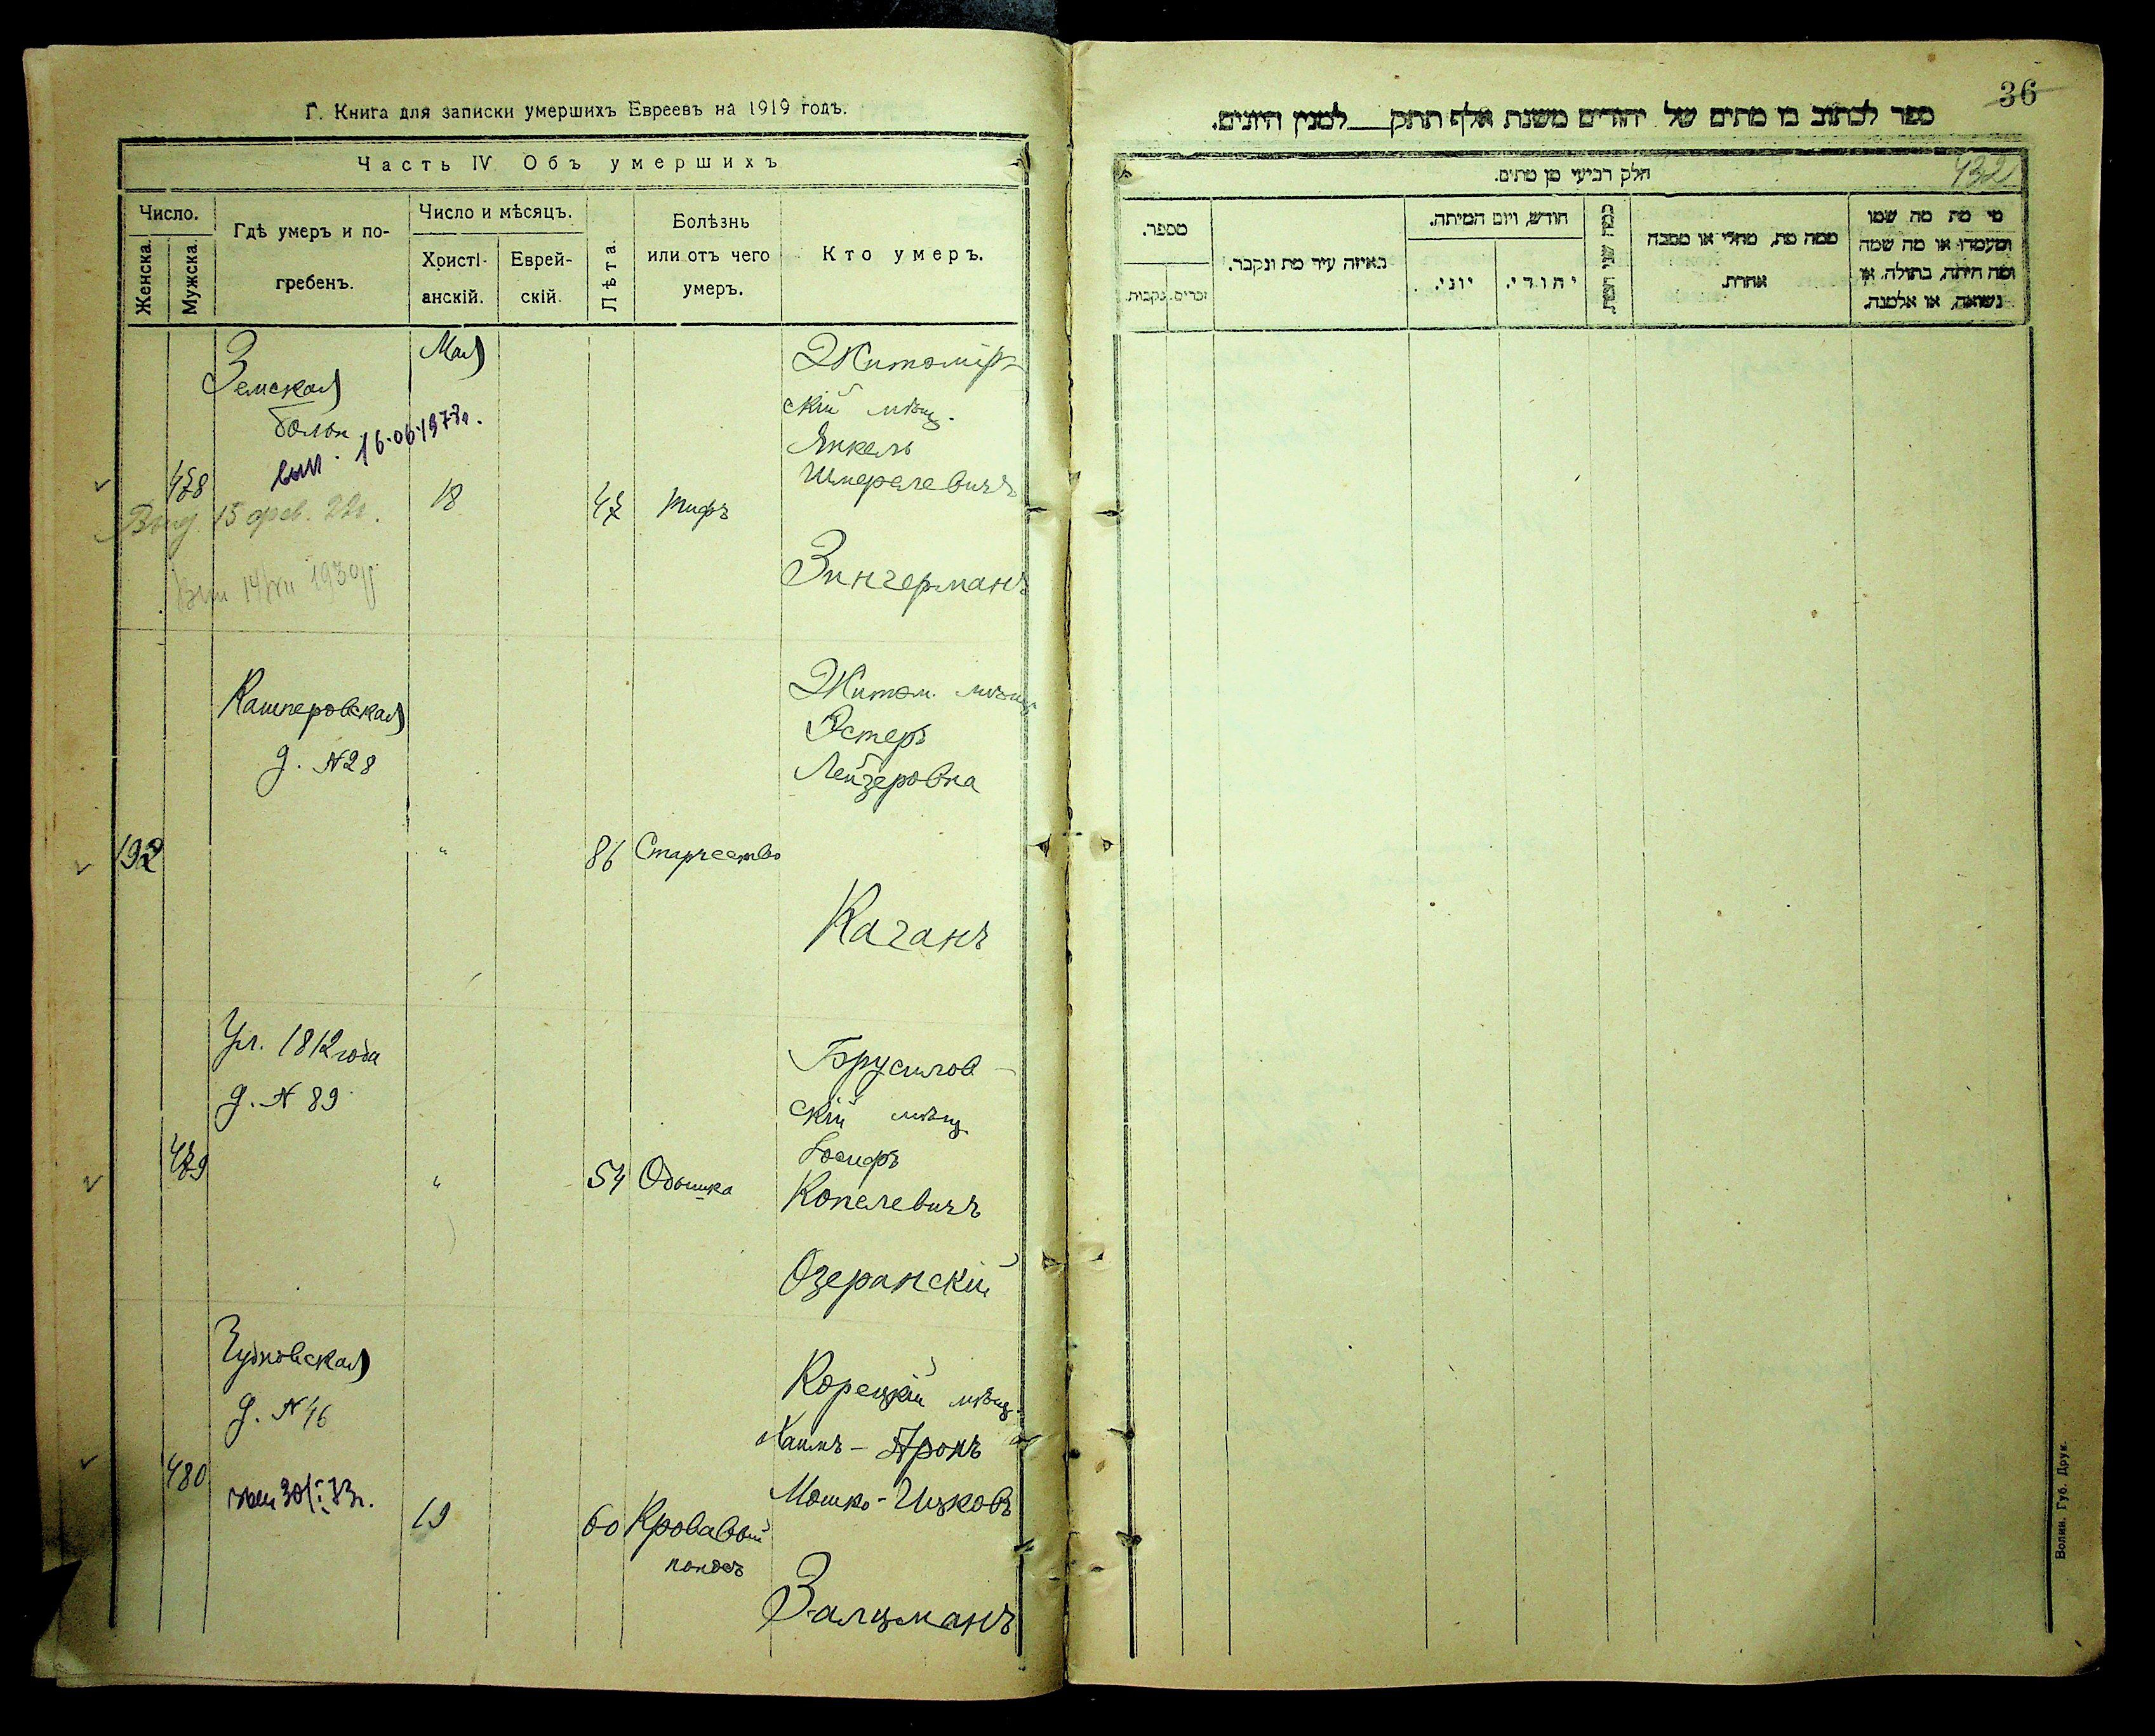 Г. Книга для записки умершихъ Евреевъ на 1919 годъ.
Часть IV. Объ умершихъ
Число.
Женска.
Мужска.
Гдѣ умеръ и по-
гребенъ.
Число и мѣсяцъ.
Христі-
анскій.
Еврей-
скій.
Лѣта.
Болѣзнь
или отъ чего
умеръ.
Кто умеръ.
478
Земская
больн.
вып. 16.06.1977г.
Выд. 15 фев. 22г.
Мая
18
47
Тифъ
Житомір-
скій мѣщ.
Янкель
Шмерелевичъ
Зингерманъ
192
Кашперовская
д. № 28
"
86
Старчество
Житом. мѣщ
Эстеръ
Лейзеровна
Каганъ
479
Ул. 1812 года
д. № 89
"
54
Одышка
Брусилов-
скій мѣщ
Іосифъ
Копелевичъ
Озеранскій
480
Чудновская
д. № 46
19
60
Кровавый
поносъ
Корецкій мѣщ.
Хаимъ-Аронъ
Мошко-Ицковъ
Залцманъ
36
ספר לכתוב בו מתים של יהודים משנת אלף תתק___למנין היונים.
432
חלק רביעי מן מתים.
מספר.
נקבות.
זכרים.
באיזה עיר מת ונקבר.
חודש, ויום המיתה.
יוני.
יהודי.
כמה שני המת.
ממה מת, מחלי או מסבה
אחרת.
מי מת מה שמו
ומעמדו או מה שמה
ומה היתה, בתולה, או
נשואה, או אלמנה.
Волын. Губ. Друк.